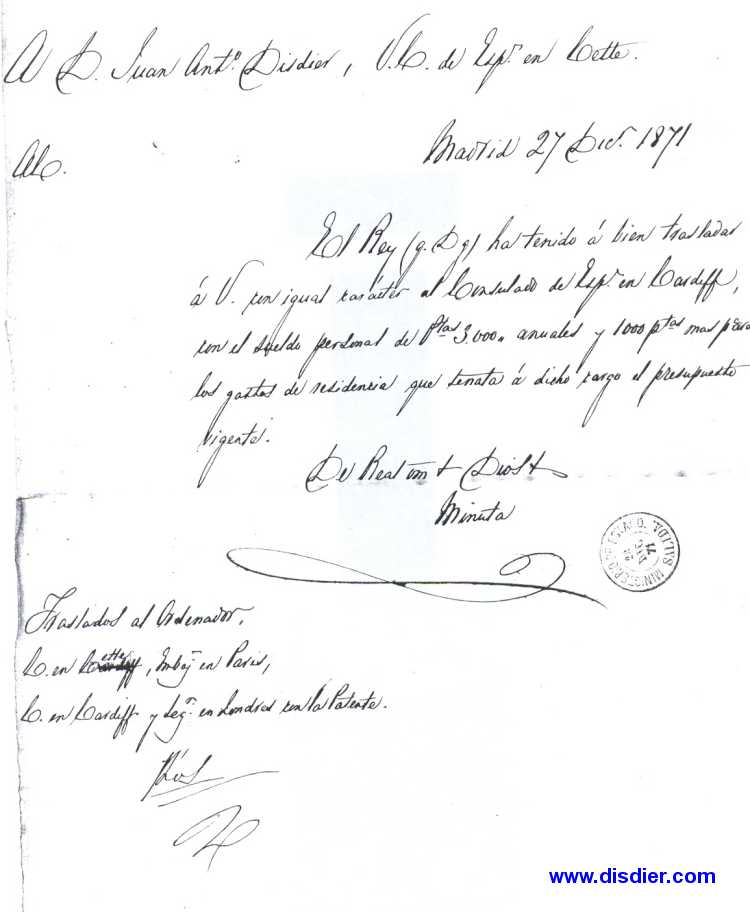 A D. Juan Antº. Disdier, V.C. de Espª. en Cette.
Madrid 27 Dicᵉ. 1871
El Rey (q. D g) ha tenido á bien trasladar
á V. con igual carácter al Consulado de Espª. en Cardiff,
con el sueldo personal de Ptas 3.000,, anuales y 1000 ptas mas para
los gastos de residencia que señala á dicho cargo el presupuesto
vigente.
De Real om + Dios +
Minuta
MINISTERIO DE ESTADO. SALIDA.
Traslados al Ordenador,
C. en Cette, Embª. en Paris,
C. en Cardiff y Legⁿ. en Londres con la Patente.
www.disdier.com